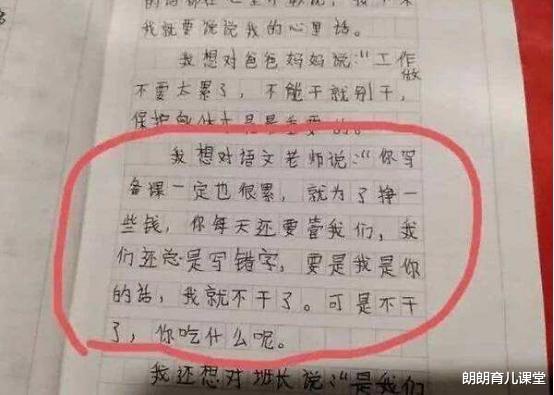 我就要说说我的心里话。
我想对爸爸妈妈说:“工作
不要太累了,不能干就别干,
保护身体才是最重要的。
我想对语文老师说:“你写
备课一定也很累,就为了挣一
些钱,你每天还要管我们,我
们还总是写错字,要是我是你
的话,我就不干了。可是不干
了,你吃什么呢。
我还想对班长说:“是我们
朗朗育儿课堂